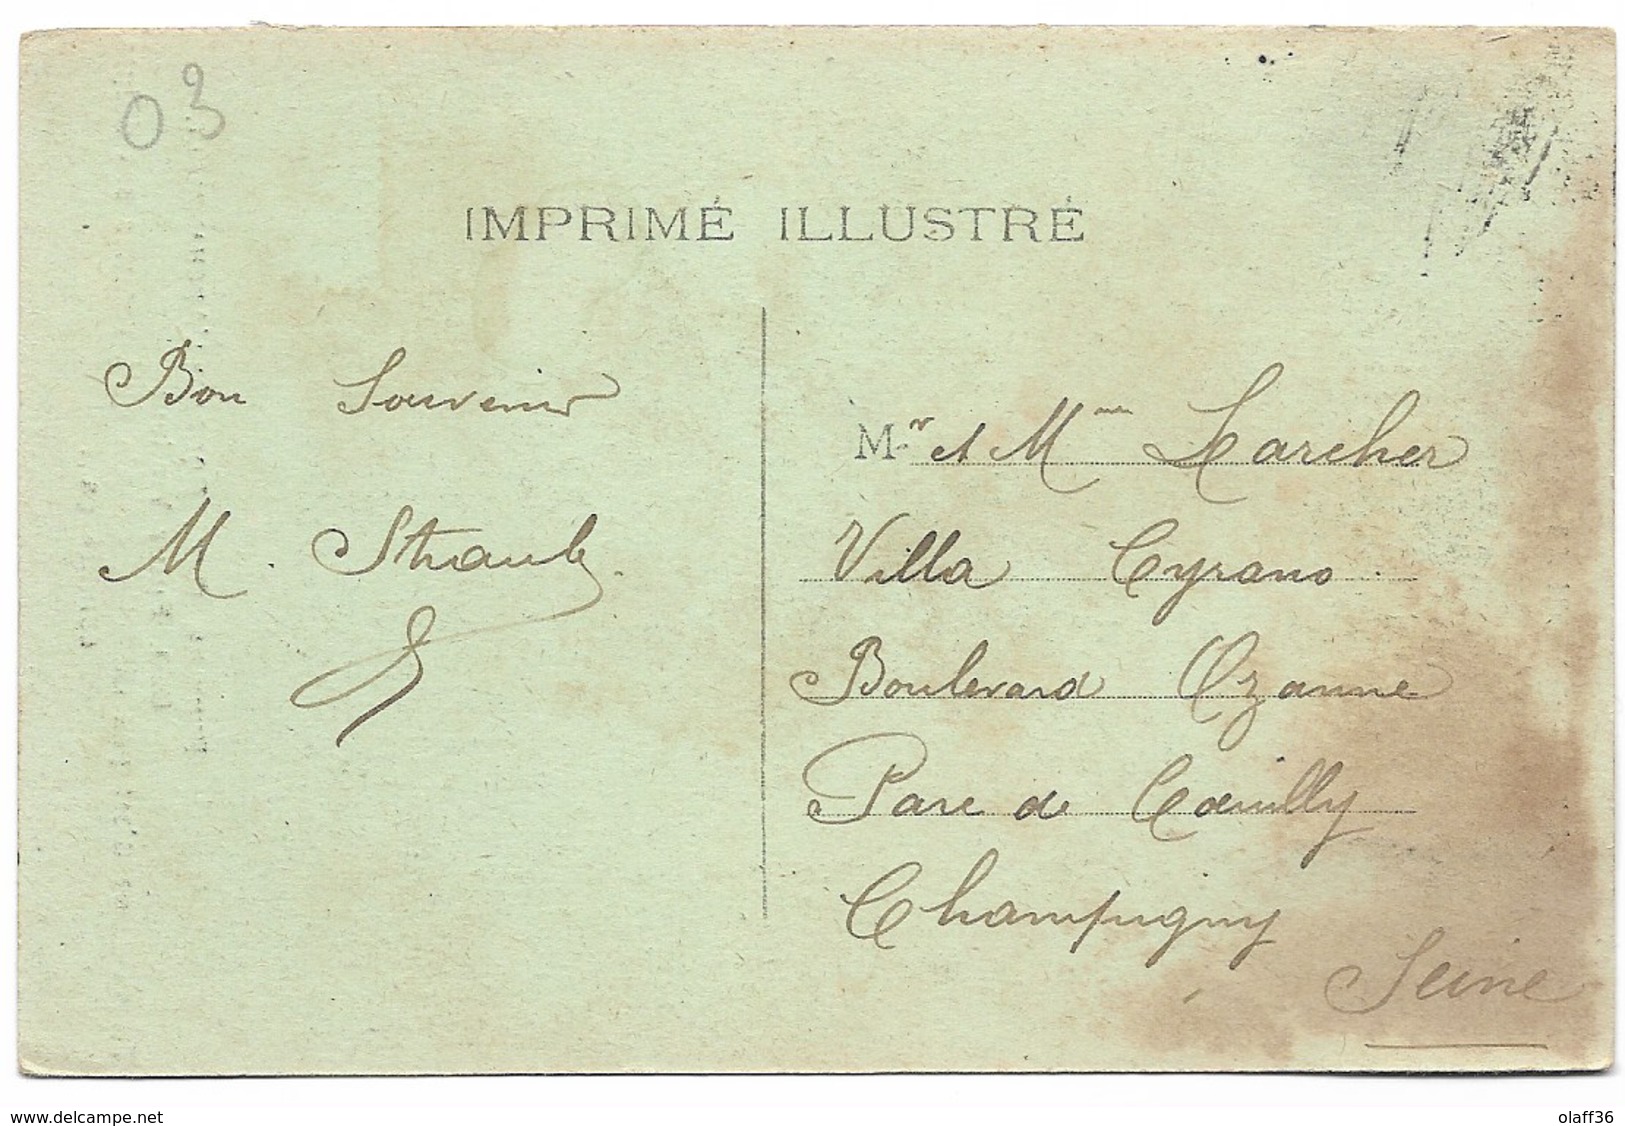 03
IMPRIMÉ ILLUSTRÉ
Bon Souvenir
M. Straub.
Mr et Mme Larcher
Villa Cyrano
Boulevard Ozanne
Parc de Cœuilly
Champigny
Seine
www.delcampe.net
olaff36